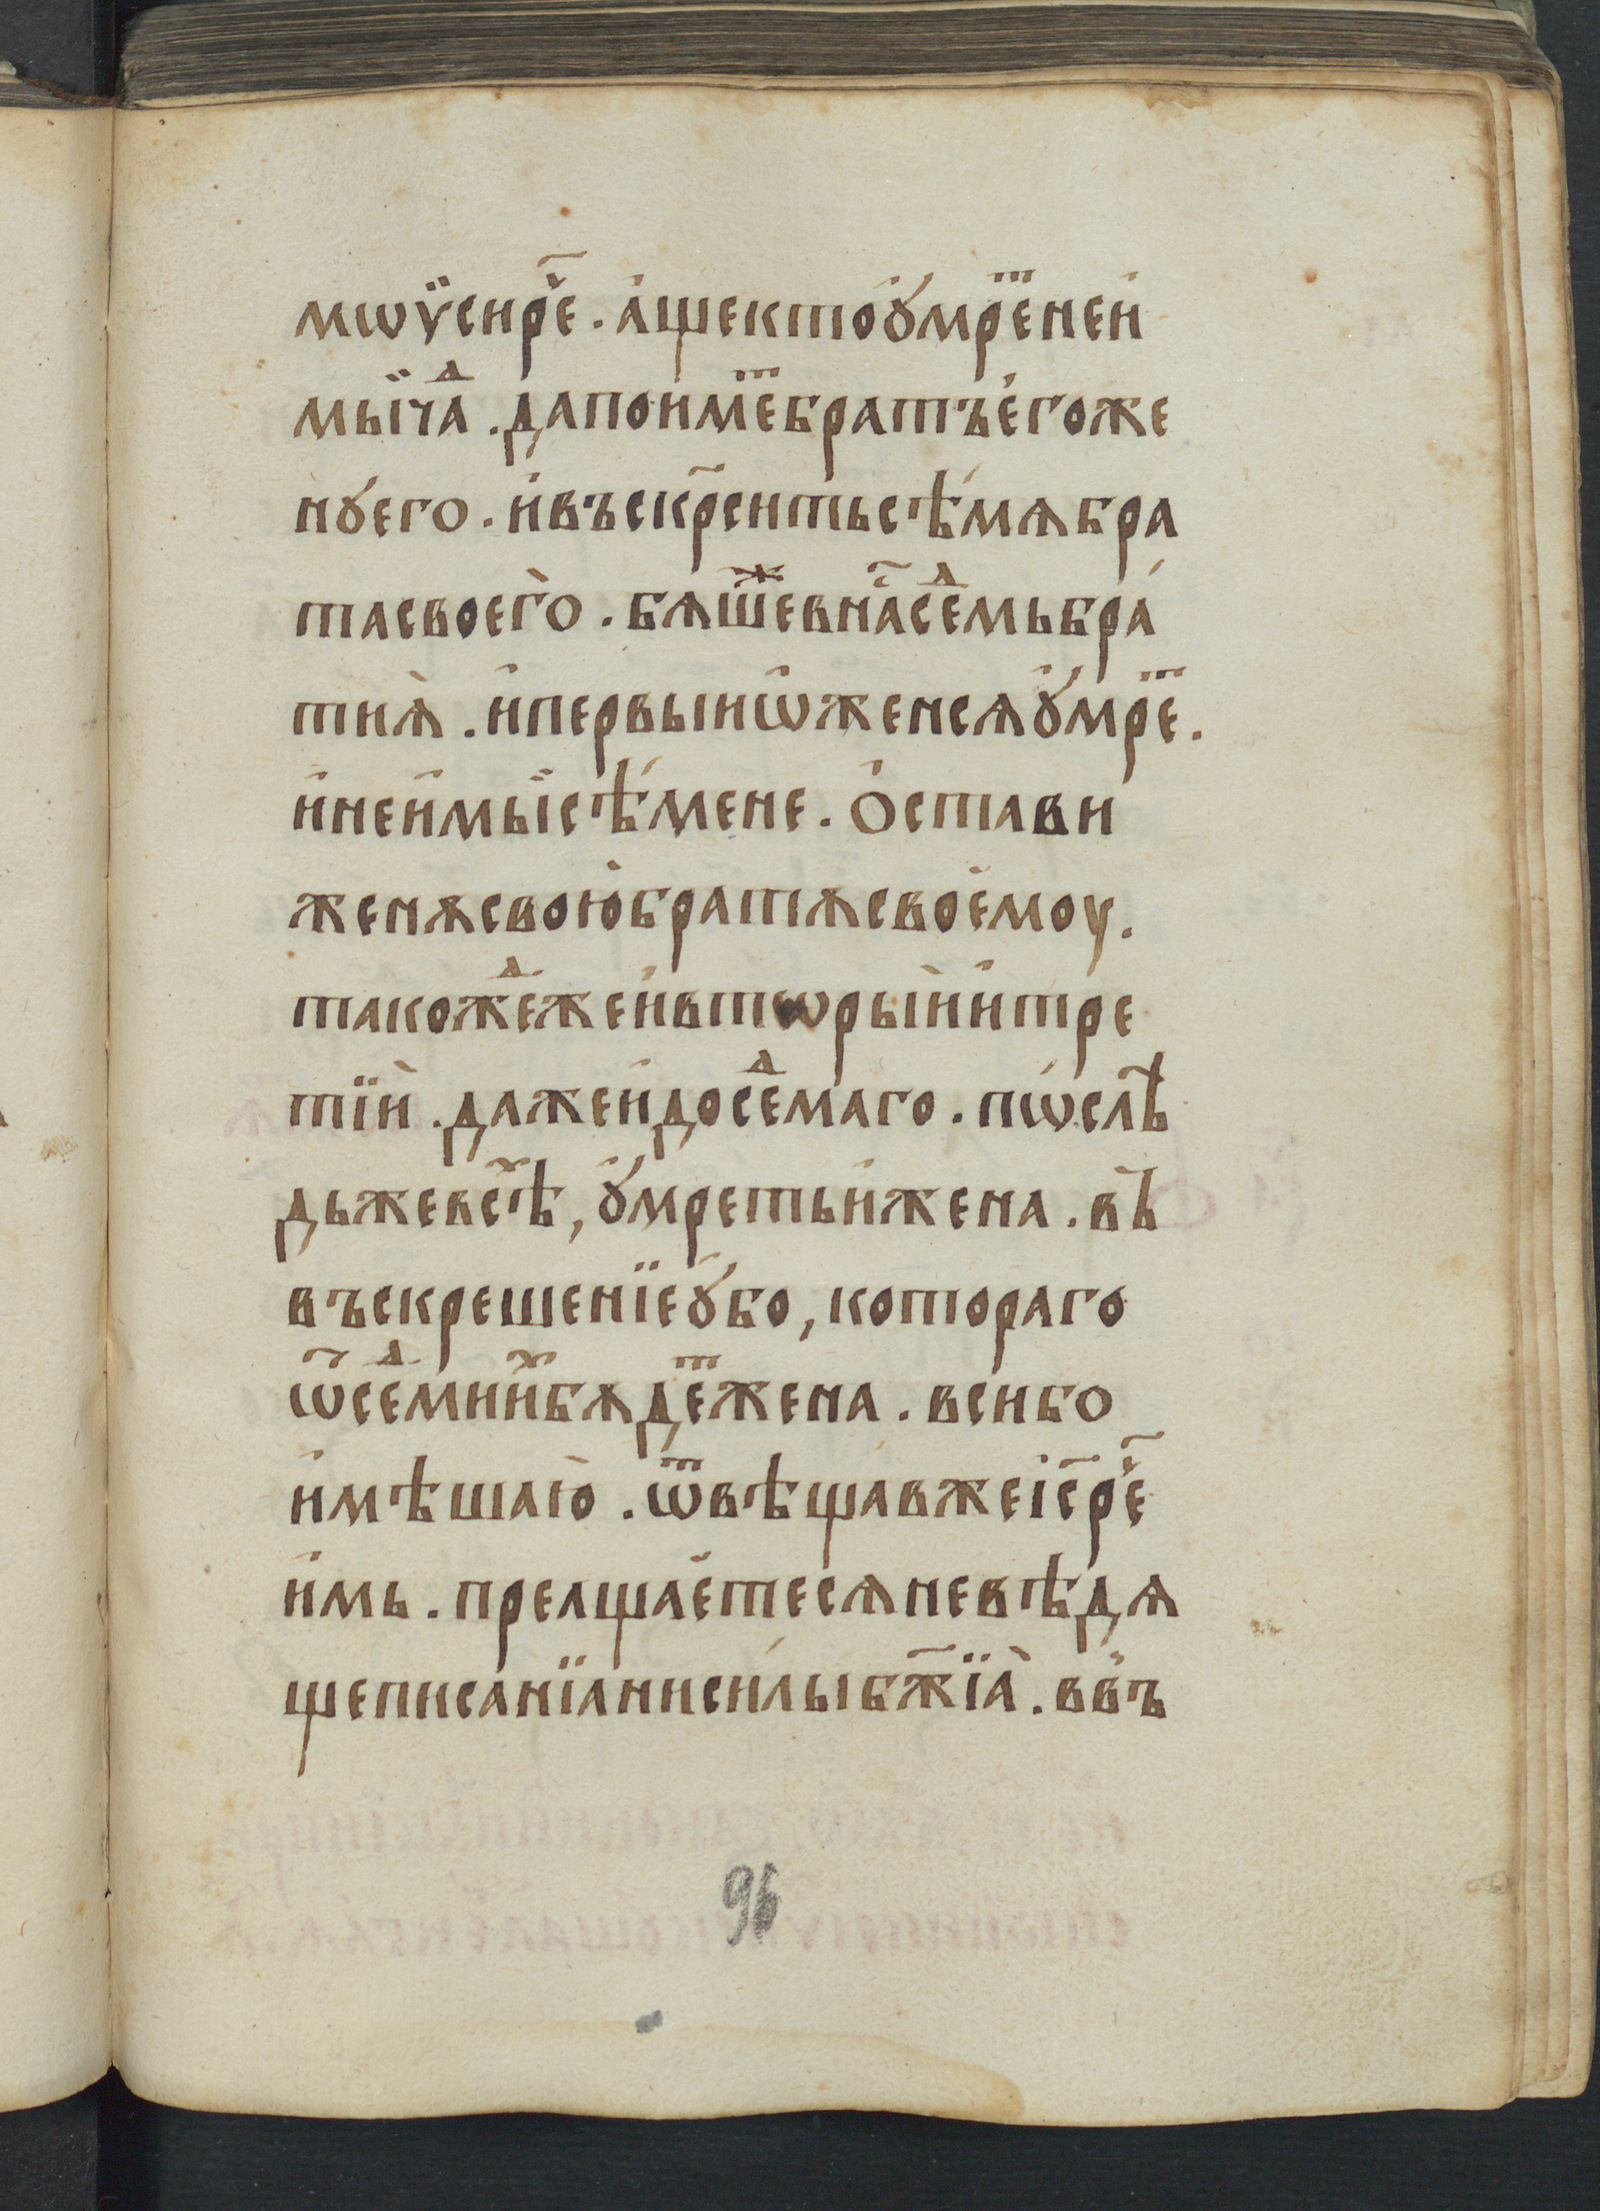 мѡѷсир҇е . а҆щектоꙋ҆мрⷮе҆неи҆
мыїчⷣа . дапои҆мⷮебратъе҆гоже
нꙋего . и҆въскр҃сѝтьсѣ́мѧбра
тасвоего̀ . бѧшⷤевнⷭ҇асⷣемьбра́
тиѧ̀ . и҆первыиѡ҆женсѧꙋ҆мрⷮе .
и҆неи҆мыїсѣ́мене . о҆стави
женѫсвою̀братѫсвое҆моу .
такожⷣежеи҆втѡрыи҆и҆тре
тїи҆ . дажеи҆досⷣемаго . пѡ́слѣ
дьжевсⷯѣ , ꙋ҆мретьи҆жена . въ
въскрешенїеꙋ҆бо , котораго
ѿсⷣемиⷯибѫдⷮежена . всибо
и҆мѣшаю̀ . ѿвѣщавжеі҃ср҇е
и҆мь . прелщае҆тесѧневѣдѧ
щеписанїанисѝлыбж҃їа̀ . ввъ
96